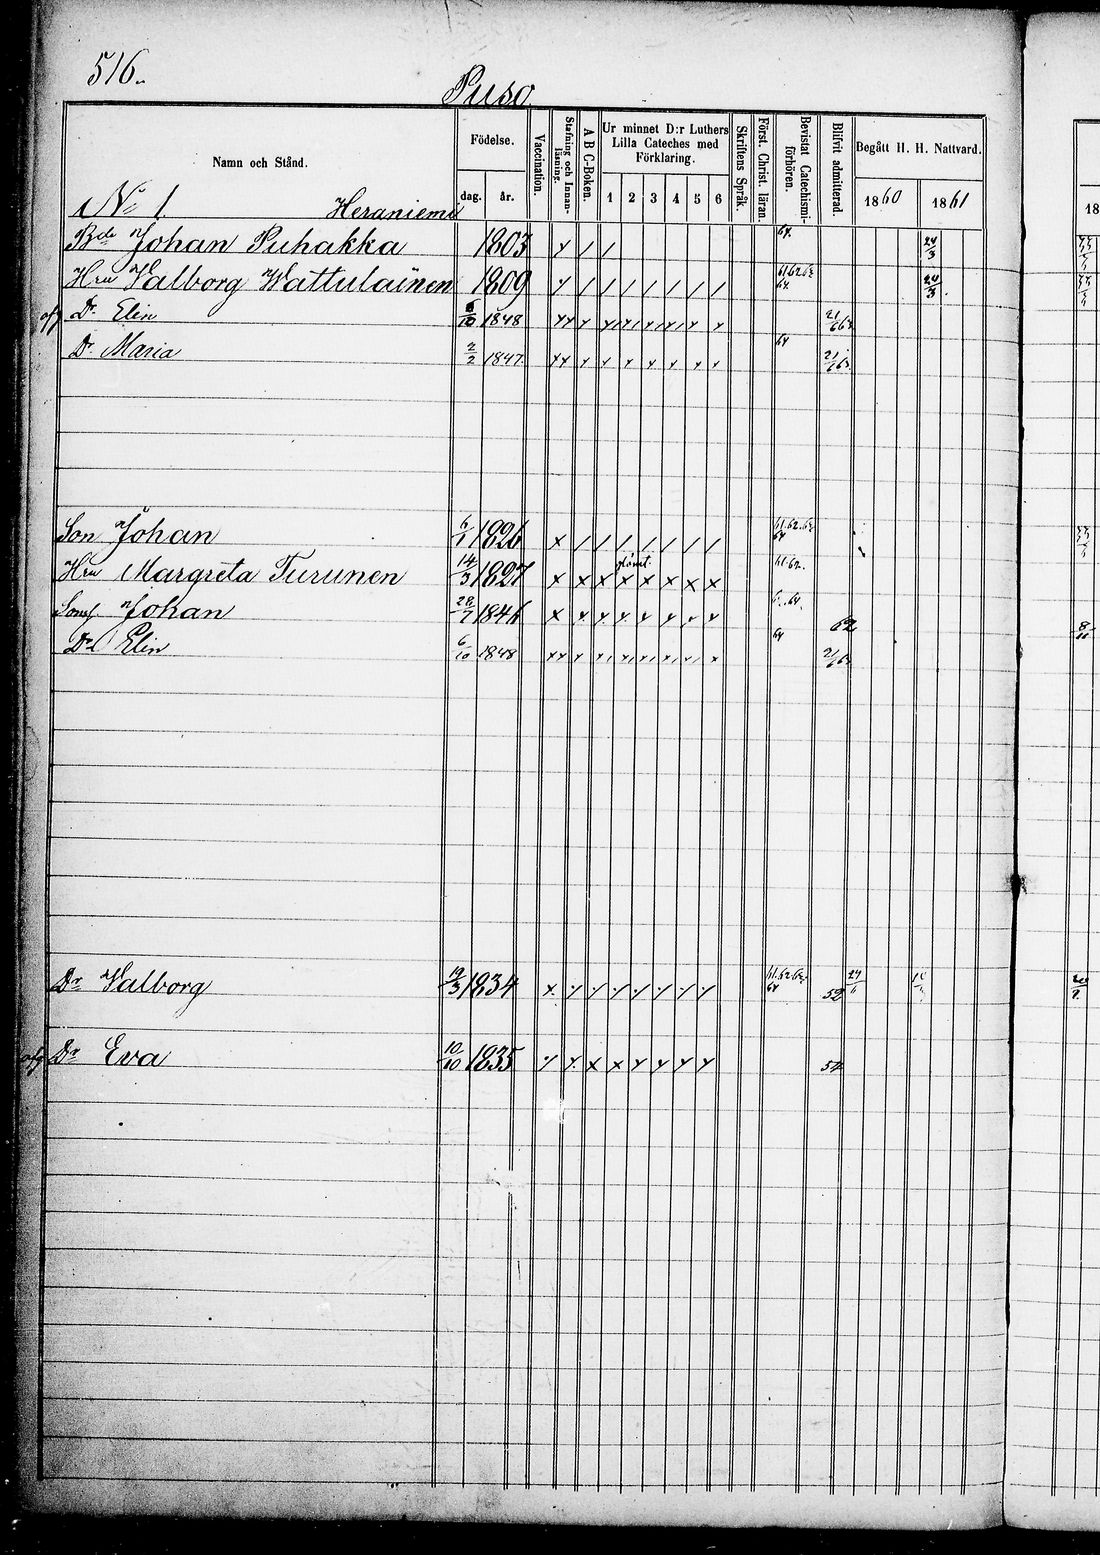 516.
Puso
Namn och Stånd.
Födelse.
dag. år.
Vaccination.
Stafning och Innan-läsning.
A B C-Boken.
Ur minnet D:r Luthers
Lilla Cateches med
Förklaring.
1 2 3 4 5 6
Skriftens Språk.
Först. Christ. läran.
Bevistat Catechismi-förhören.
Blifvit admitterad.
Begått H. H. Nattvard.
1860 1861
No 1 Heraniemi
Bde Johan Puhakka 1803 64. 24/3
Hru Valborg Wattulainen 1809 61.62.63 64 24/3
Dr Elin 6/10 1848 21/6 63
Dr Maria 2/2 1847. 64 21/6 63
Son Johan 6/1 1826 61.62.63 64
Hru Margreta Turunen 14/3 1827 61.62.
Sons Johan 28/7 1846 64. 62 8/11
Dr Elin 6/10 1848 64 21/6 63
Dr Valborg 19/3 1834 61.62.63. 64 52
Dr Eva 10/10 1835 52